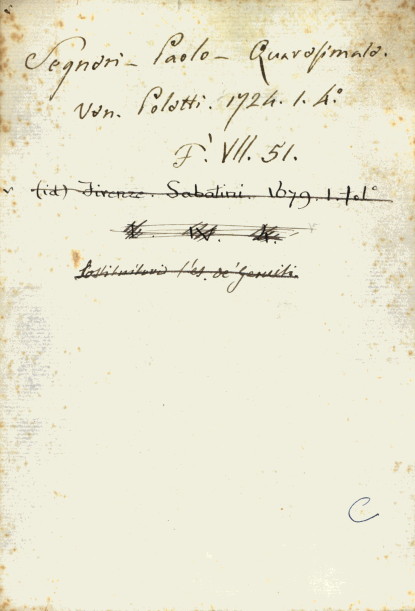 Segnari - Paolo - Quaresimale.
Ven. Polotti. 1724. 1. 4°
F. VII. 51.
(id) Firenze. Sabatini. 1679. 1. fol°
Sostituitovi l'es. de' Gesuiti.
C